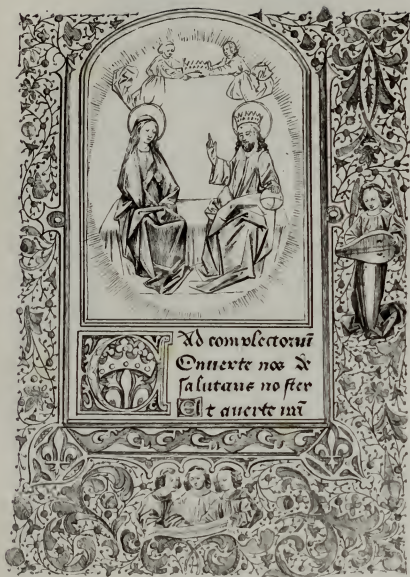 Ad completoriū
Conuerte nos de
salutaris no ster
Et auerte irā